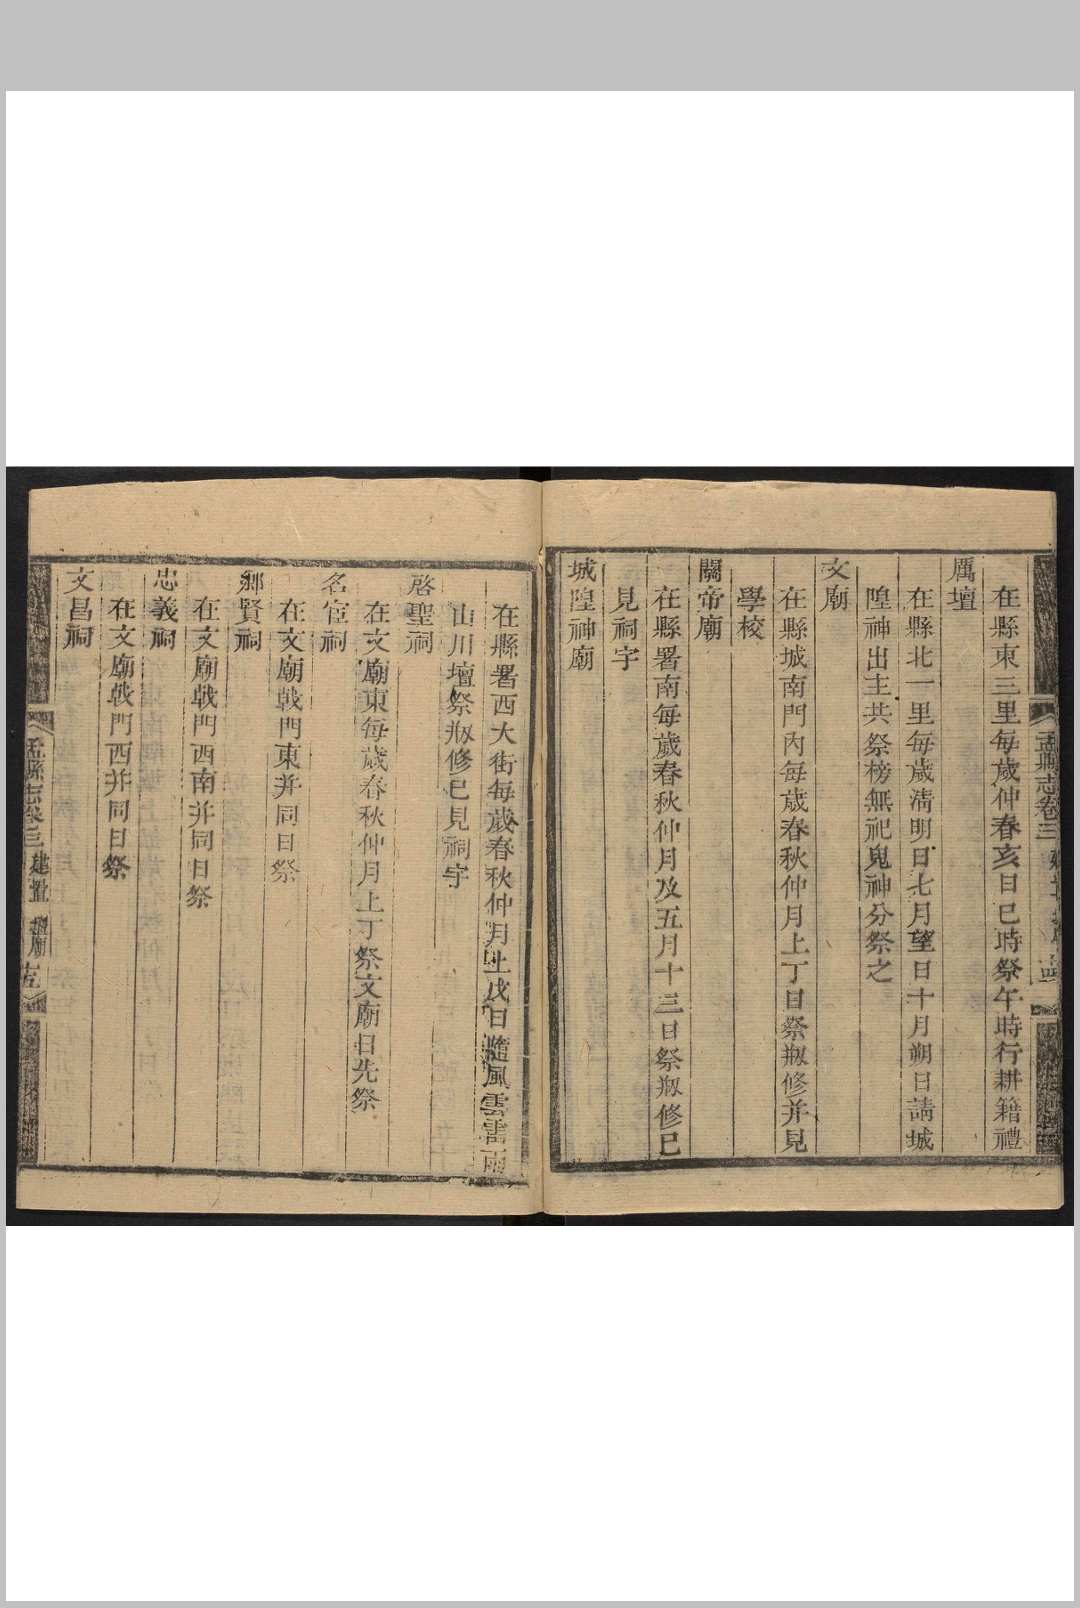 在縣東三里每歲仲春亥日巳時祭午時行耕籍禮
厲壇
在縣北一里每歲淸明日七月望日十月朔日請城
隍神出主共祭榜無祀鬼神分祭之
文廟
在縣城南門內每歲春秋仲月上丁日祭剏修并見
學校
關帝廟
在縣署南每歲春秋仲月及五月十三日祭剏修已
見祠宇
城隍神廟
在縣署西大街每歲春秋仲月上戊日隨風雲雷雨
山川壇祭剏修已見祠宇
啓聖祠
在文廟東每歲春秋仲月上丁祭文廟日先祭
名宦祠
在文廟戟門東并同日祭
鄉賢祠
在文廟戟門西南并同日祭
忠義祠
在文廟戟門西并同日祭
文昌祠
孟縣志卷三 建置 壇廟